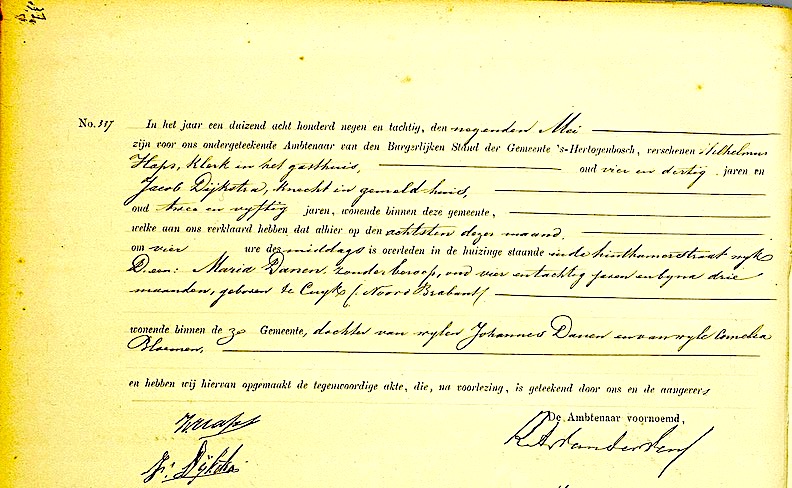 No. 337 In het jaar een duizend acht honderd negen en tachtig, den negenden Mei
zijn voor ons ondergeteekende Ambtenaar van den Burgerlijken Stand der Gemeente 's-Hertogenbosch, verschenen Wilhelmus
Haps, Klerk in het gasthuis, oud vier en dertig jaren en
Jacob Dijkstra, knecht in gemeld huis,
oud twee en vyftig jaren, wonende binnen deze gemeente,
welke aan ons verklaard hebben dat alhier op den achtsten dezer maand
om vier ure des middags is overleden in de huizinge staande in de hinthamerstraat wyk
D. een: Maria Danen, zonder beroep, oud vier en tachtig jaren en byna drie
maanden, geboren te Cuyk (Noord Brabant)
wonende binnen de ze Gemeente, dochter van wylen Johannes Danen en van wyle Cornelia
Bloemen,
en hebben wij hiervan opgemaakt de tegenwoordige akte, die, na voorlezing, is geteekend door ons en de aangevers
De Ambtenaar voornoemd,
W Haps
Dijkstra